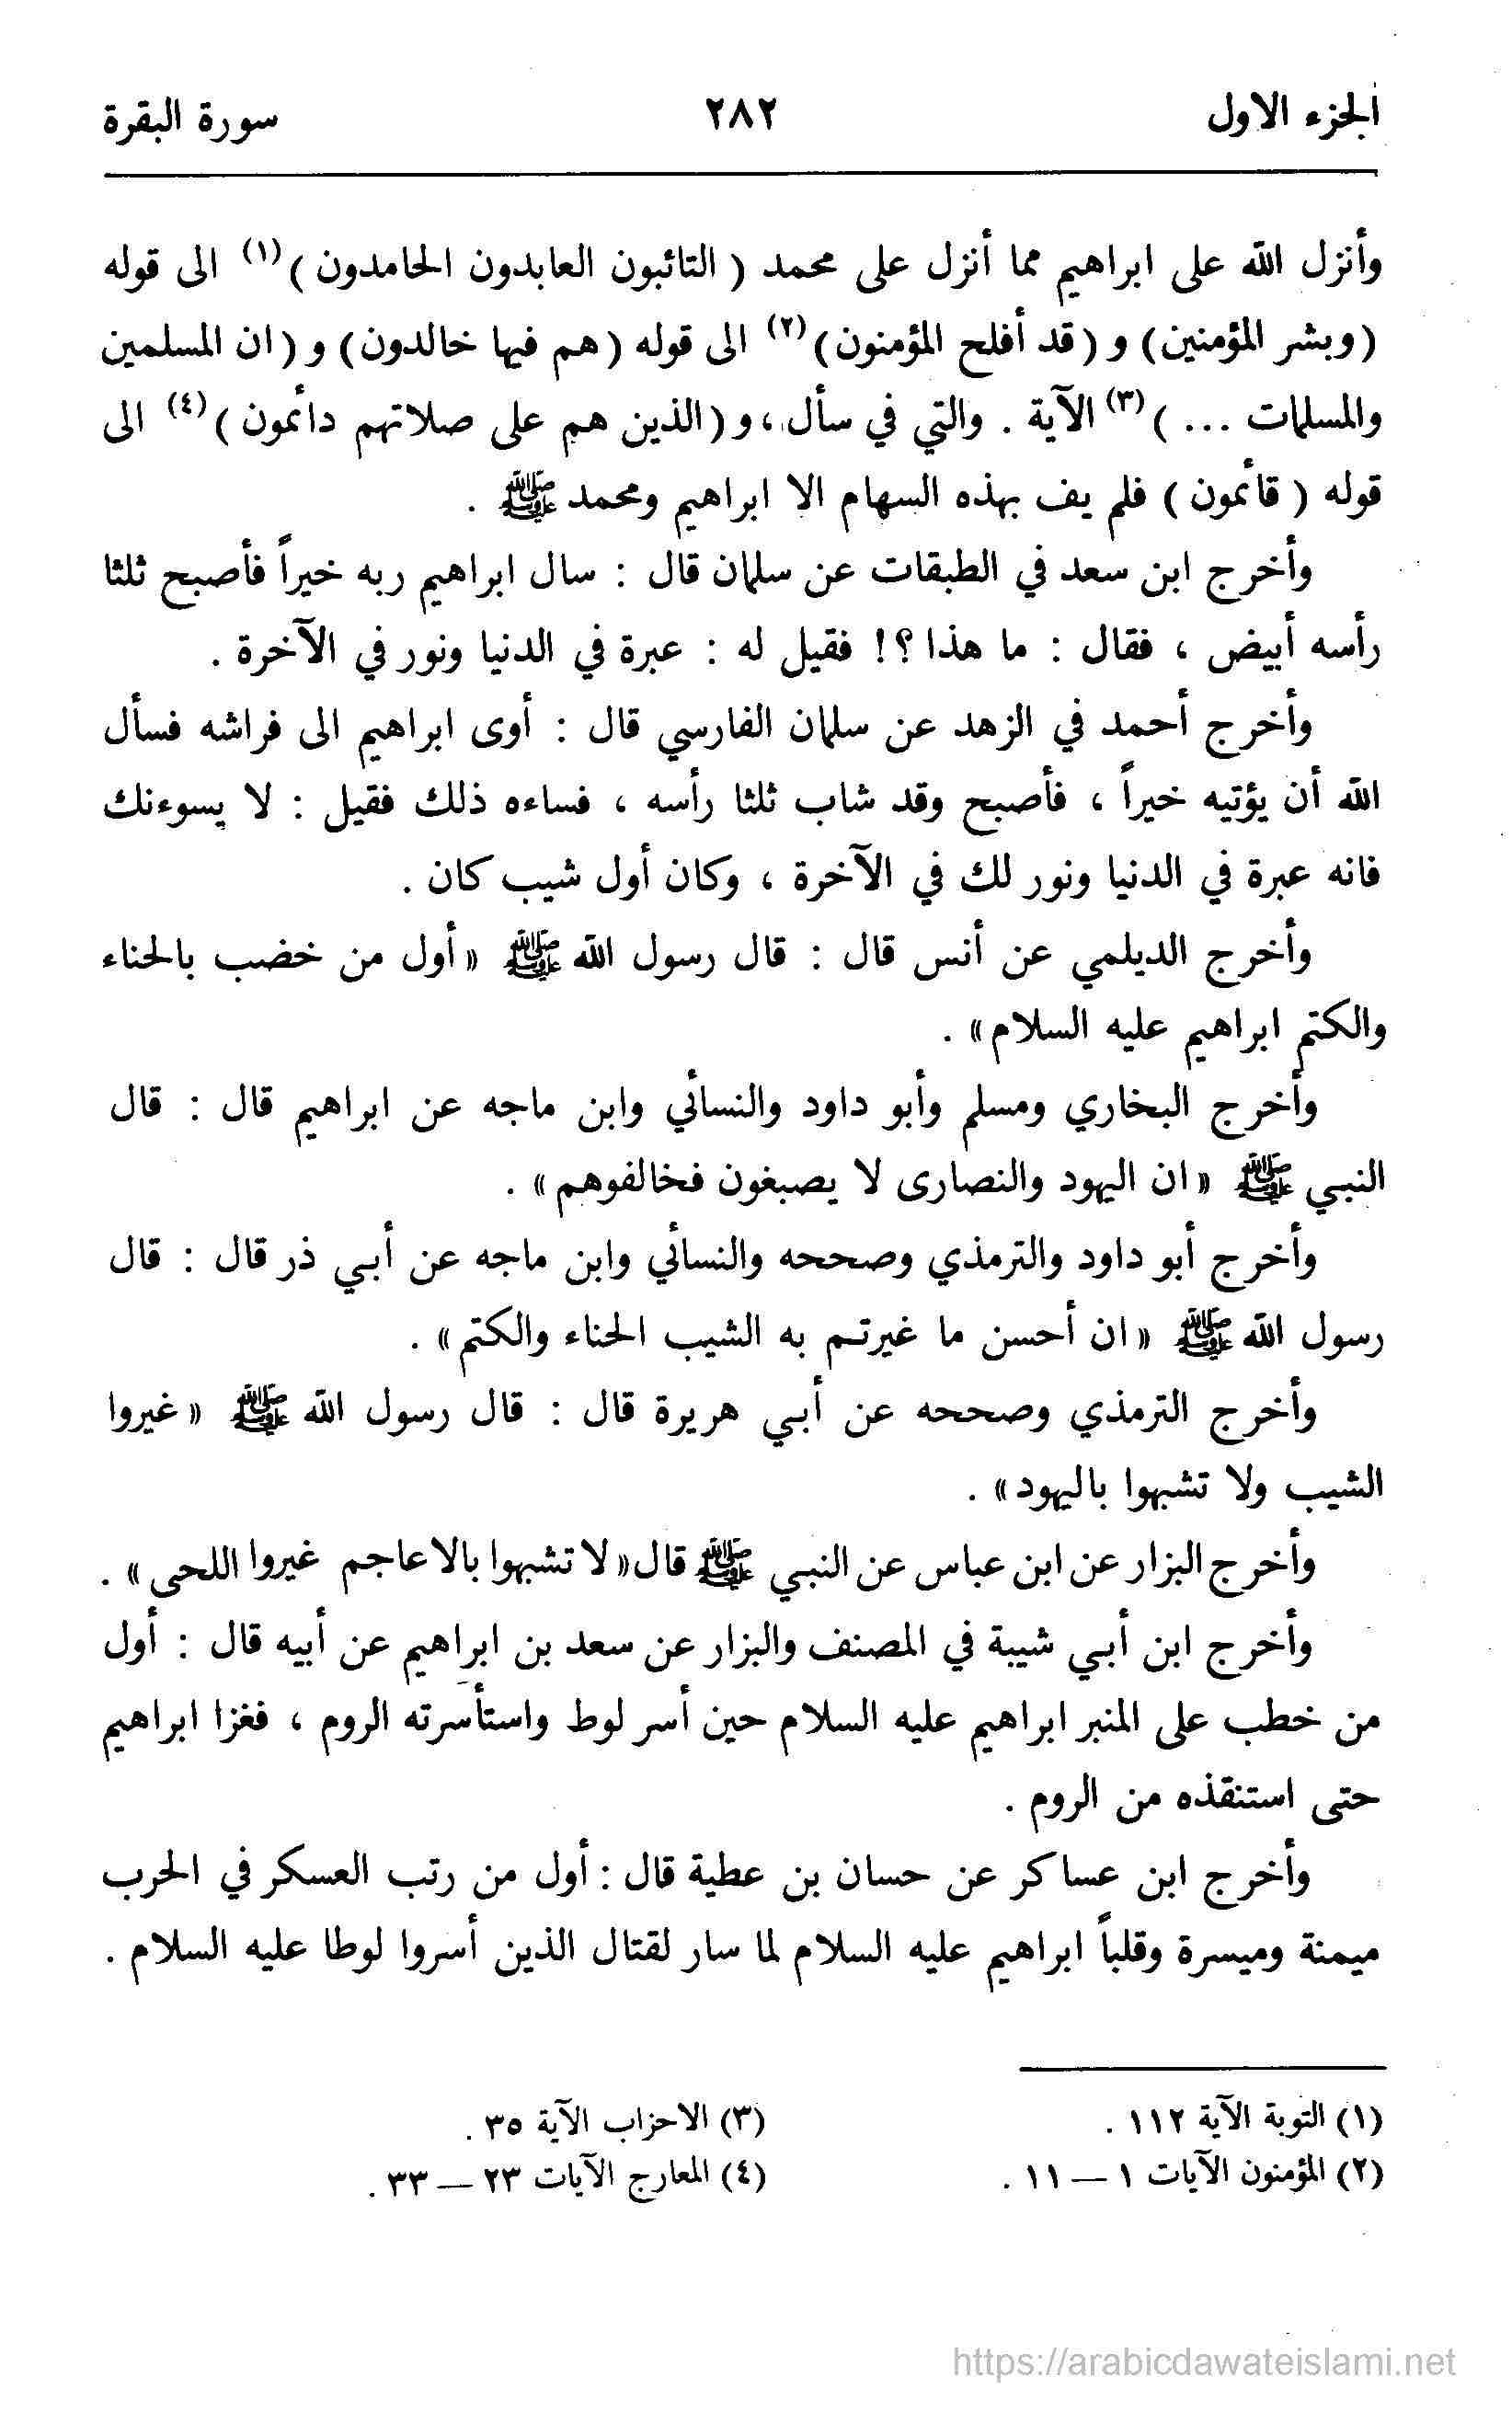 الجزء الاول
٢٨٢
سورة البقرة
وأنزل الله على ابراهيم مما أنزل على محمد ( التائبون العابدون الحامدون )(١) الى قوله
(وبشر المؤمنين) و (قد أفلح المؤمنون)(٢) الى قوله (هم فيها خالدون) و (ان المسلمين
والمسلمات ... )(٣) الآية . والتي في سأل ، و (الذين هم على صلاتهم دائمون )(٤) الى
قوله ( قائمون ) فلم يف بهذه السهام الا ابراهيم ومحمد ﷺ .
وأخرج ابن سعد في الطبقات عن سلمان قال : سال ابراهيم ربه خيراً فأصبح ثلثا
رأسه أبيض ، فقال : ما هذا ؟! فقيل له : عبرة في الدنيا ونور في الآخرة .
وأخرج أحمد في الزهد عن سلمان الفارسي قال : أوى ابراهيم الى فراشه فسأل
الله أن يؤتيه خيراً ، فأصبح وقد شاب ثلثا رأسه ، فساءه ذلك فقيل : لا يسوءنك
فانه عبرة في الدنيا ونور لك في الآخرة ، وكان أول شيب كان .
وأخرج الديلمي عن أنس قال : قال رسول الله ﷺ « أول من خضب بالحناء
والكتم ابراهيم عليه السلام» .
وأخرج البخاري ومسلم وأبو داود والنسائي وابن ماجه عن ابراهيم قال : قال
النبي ﷺ « ان اليهود والنصارى لا يصبغون فخالفوهم» .
وأخرج أبو داود والترمذي وصححه والنسائي وابن ماجه عن أبي ذر قال : قال
رسول الله ﷺ « ان أحسن ما غيرتم به الشيب الحناء والكتم» .
وأخرج الترمذي وصححه عن أبي هريرة قال : قال رسول الله ﷺ « غيروا
الشيب ولا تشبهوا باليهود» .
وأخرج البزار عن ابن عباس عن النبي ﷺ قال« لا تشبهوا بالاعاجم غيروا اللحى» .
وأخرج ابن أبي شيبة في المصنف والبزار عن سعد بن ابراهيم عن أبيه قال : أول
من خطب على المنبر ابراهيم عليه السلام حين أسر لوط واستأسرته الروم ، فغزا ابراهيم
حتى استنقذه من الروم .
وأخرج ابن عساكر عن حسان بن عطية قال : أول من رتب العسكر في الحرب
ميمنة وميسرة وقلباً ابراهيم عليه السلام لما سار لقتال الذين أسروا لوطا عليه السلام .
(١) التوبة الآية ١١٢ .
(٢) المؤمنون الآيات ١ — ١١ .
(٣) الاحزاب الآية ٣٥ .
(٤) المعارج الآيات ٢٣ — ٣٣ .
https://arabicdawateislami.net